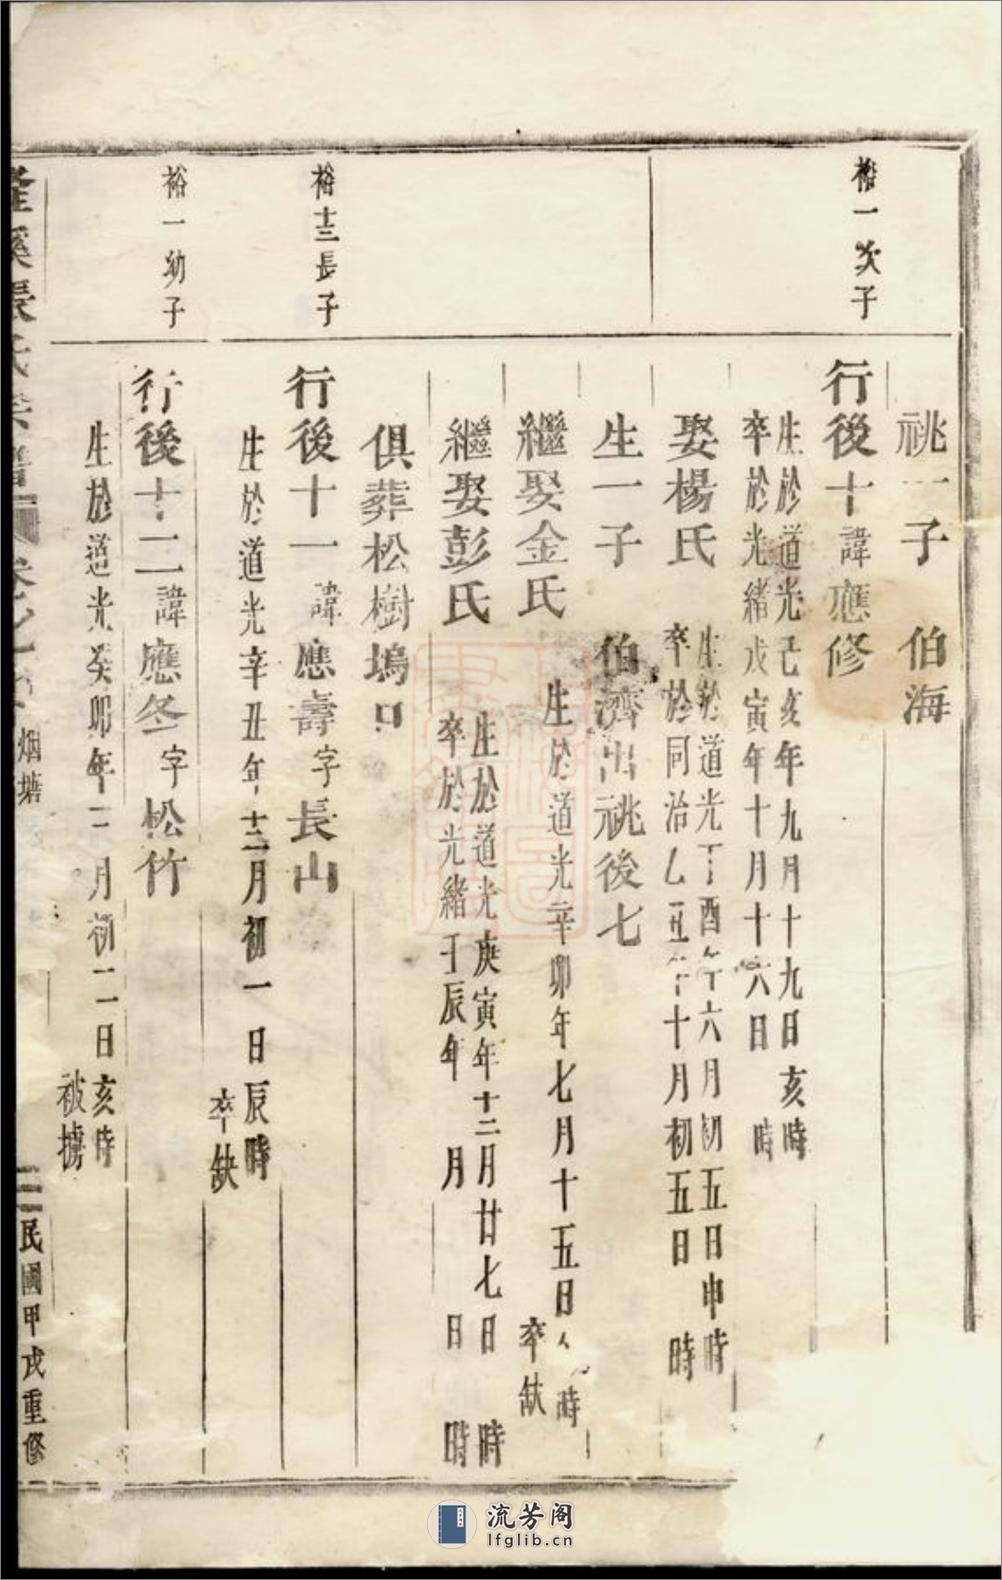 祧一子　伯海
裕一次子
行後十諱應修
生於道光己亥年九月十九日亥時
卒於光緒戊寅年十月十六日　時
娶楊氏
生於道光丁酉年六月初五日申時
卒於同治乙丑年十月初五日　時
生一子　伯濟出祧後七
繼娶金氏
生於道光辛卯年七月十五日　時
卒缺
繼娶彭氏
生於道光庚寅年十二月廿七日　時
卒於光緒壬辰年　月　日　時
俱葬松樹塢口
裕十三長子
行後十一諱應壽字長山
生於道光辛丑年十二月初一日辰時
卒缺
裕一幼子
行後十二諱應冬字松竹
生於道光癸卯年二月初二日亥時
被擄
溪張氏宗譜
烟塘
民國甲戌重修
流芳阁
lfglib.cn